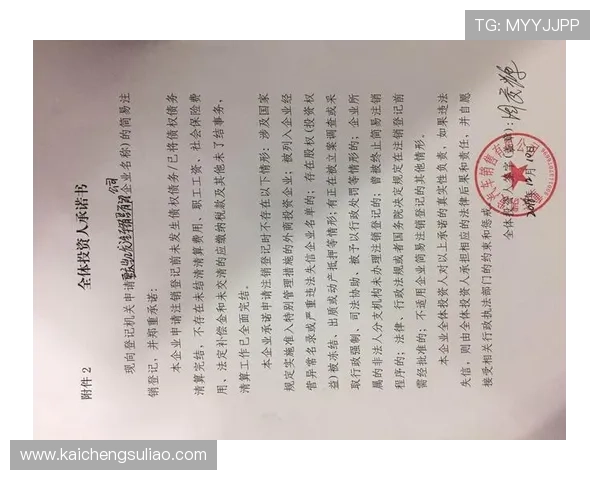 TG: MYYJJPP
附件 2
全体投资人承诺书
现向登记机关申请(企业名称)的简易注
销登记，并郑重承诺：
本企业申请注销登记前未发生债权债务/已将债权债务
清算完结，不存在未结清清算费用、职工工资、社会保险费
用、法定补偿金和未交清的应缴纳税款及其他未了结事务，
清算工作已全面完结。
本企业承诺申请注销登记时不存在以下情形：涉及国家
规定实施准入特别管理措施的外商投资企业；被列入企业经
营异常名录或严重违法失信企业名单的；存在股权(投资权
益)被冻结、出质或动产抵押等情形；有正在被立案调查或采
取行政强制、司法协助、被予以行政处罚等情形的；企业所
属的非法人分支机构未办理注销登记的；曾被终止简易注销
程序的；法律、行政法规或者国务院决定规定在注销登记前
需经批准的；不适用企业简易注销登记的其他情形。
本企业全体投资人对以上承诺的真实性负责，如果违法
失信，则由全体投资人承担相应的法律后果和责任，并自愿
接受相关行政执法部门的约束和惩戒。
全体投资人签字(盖章)：
www.kaichengsuliao.com